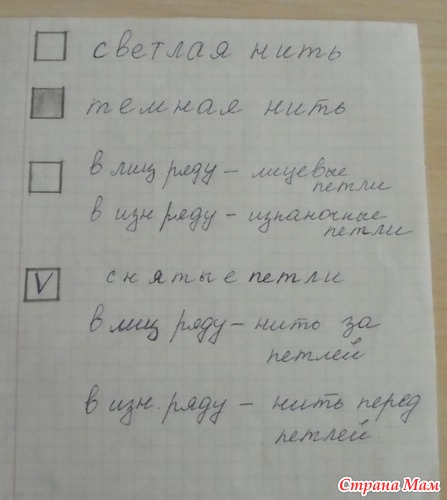 светлая нить
темная нить
в лиц. ряду – лицевые
петли
в изн. ряду – изнаночные
петли
V
снятые петли
в лиц. ряду – нить за
петлей
в изн. ряду – нить перед
петлей
Страна Мам